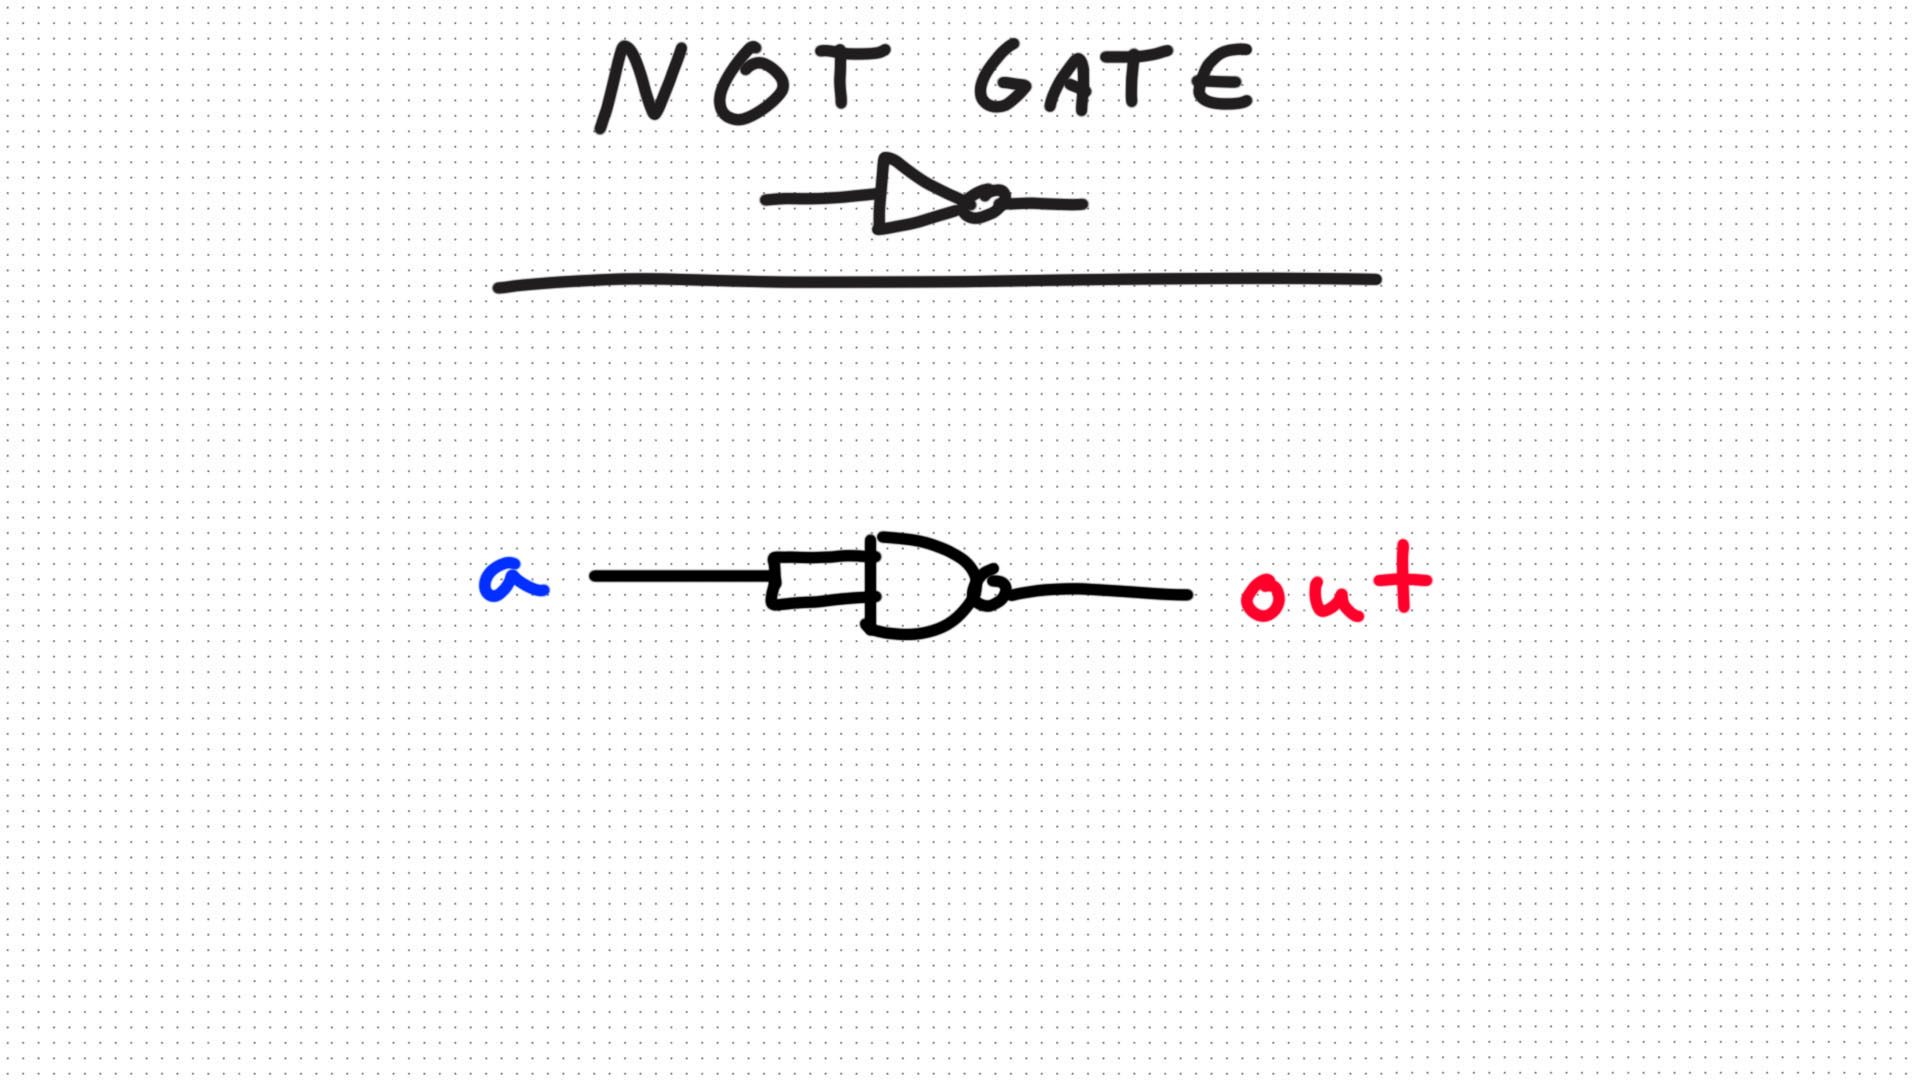 NOT GATE
a out